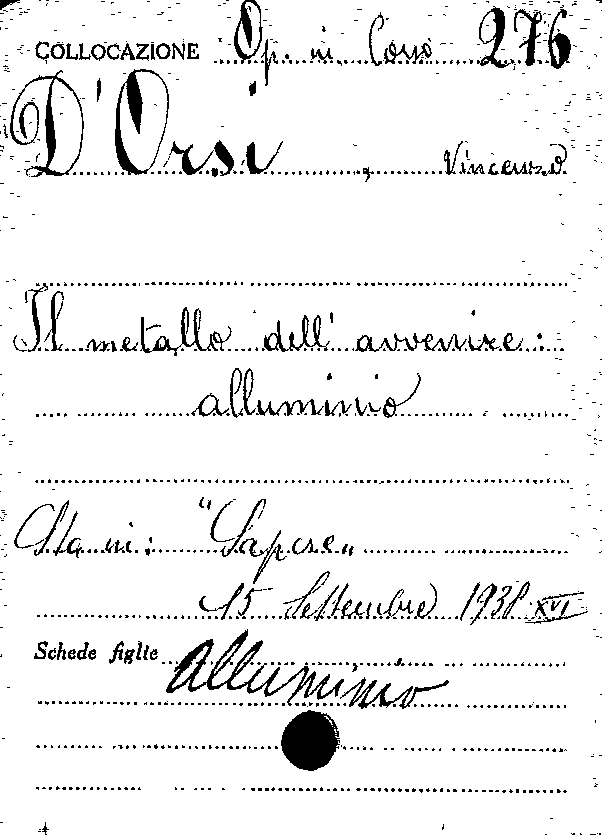 COLLOCAZIONE Op. in Corso 276
D'Orsi, Vincenzo
Il metallo dell'avvenire:
alluminio
Sta in: "Sapere„
15 Settembre 1938 XVI
Schede figlie Alluminio